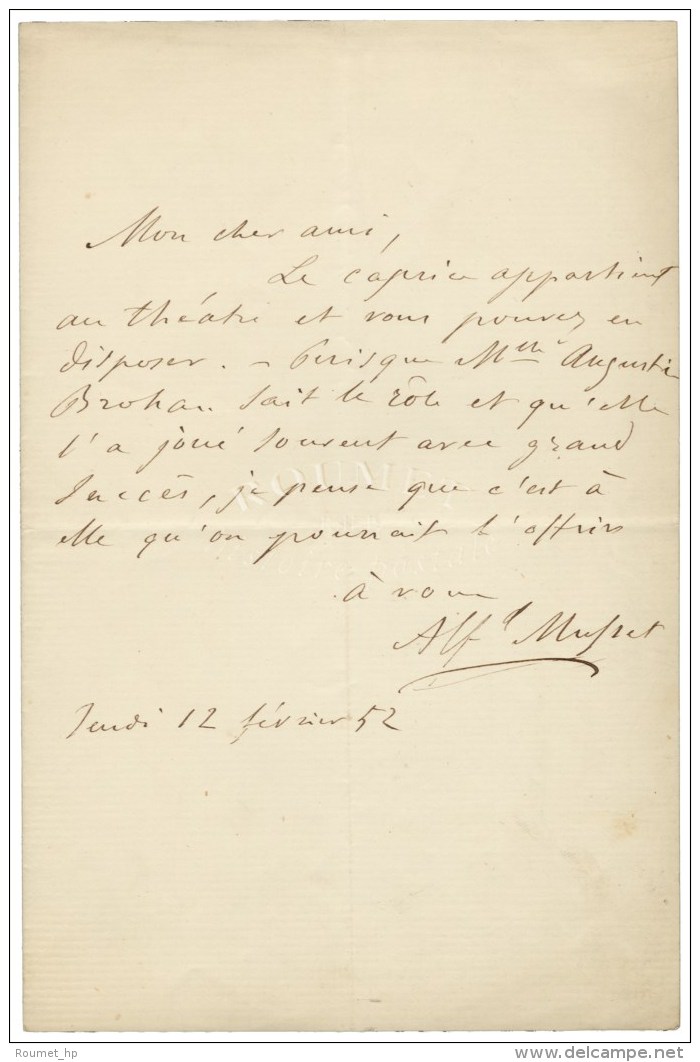 Mon cher ami,
Le caprice appartient
au théâtre et vous pouvez en
disposer. – Puisque Mlle Augustine
Brohan sait le rôle et qu'elle
l'a joué souvent avec grand
succès, je pense que c'est à
elle qu'on pourrait l'offrir
à vous
Alfd Musset
Jeudi 12 février 52
Roumet_hp
www.delcampe.net